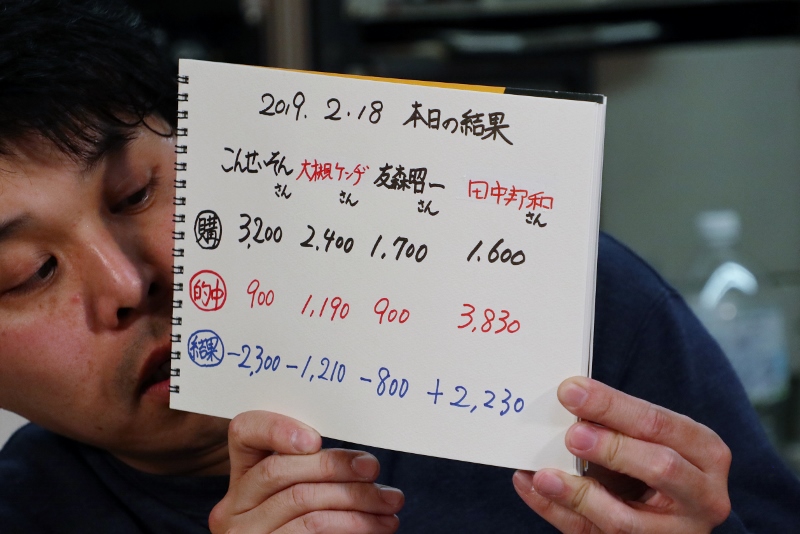 2019.2.18 本日の結果
こんせいそんさん 大槻ケンヂさん 友森昭一さん 田中邦和さん
購 3,200 2,400 1,700 1,600
的中 900 1,190 900 3,830
結果 -2,300 -1,210 -800 +2,230